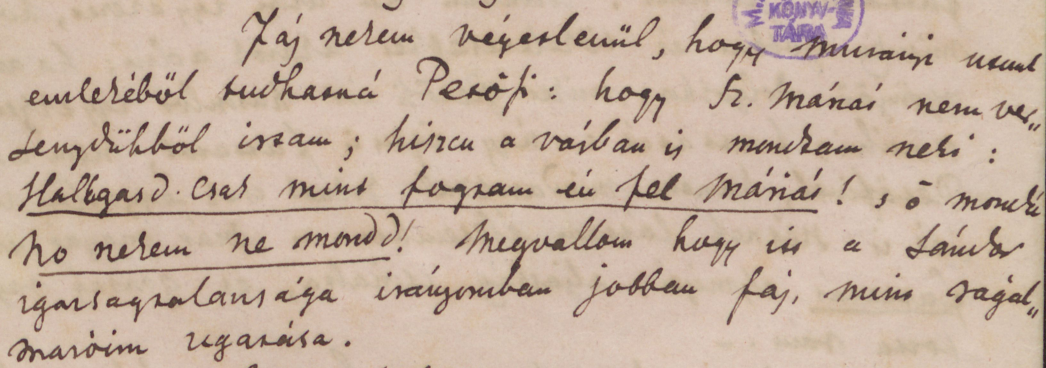 KÖNYV-
TÁRA
Fáj nekem végetlenül, hogy murányi utunk
emlékéből tudhatná Petőfi: hogy Sz. Máriát nem ver„
senydühből irtam; hiszen a várban is mondtam neki:
Hallgasd csak mint fogtam én fel Máriát! s ő mondá
No nekem ne mondd! Megvallom hogy itt a Sándor
igazságtalansága irányomban jobban fáj, mint rágal„
maróim ugatása.